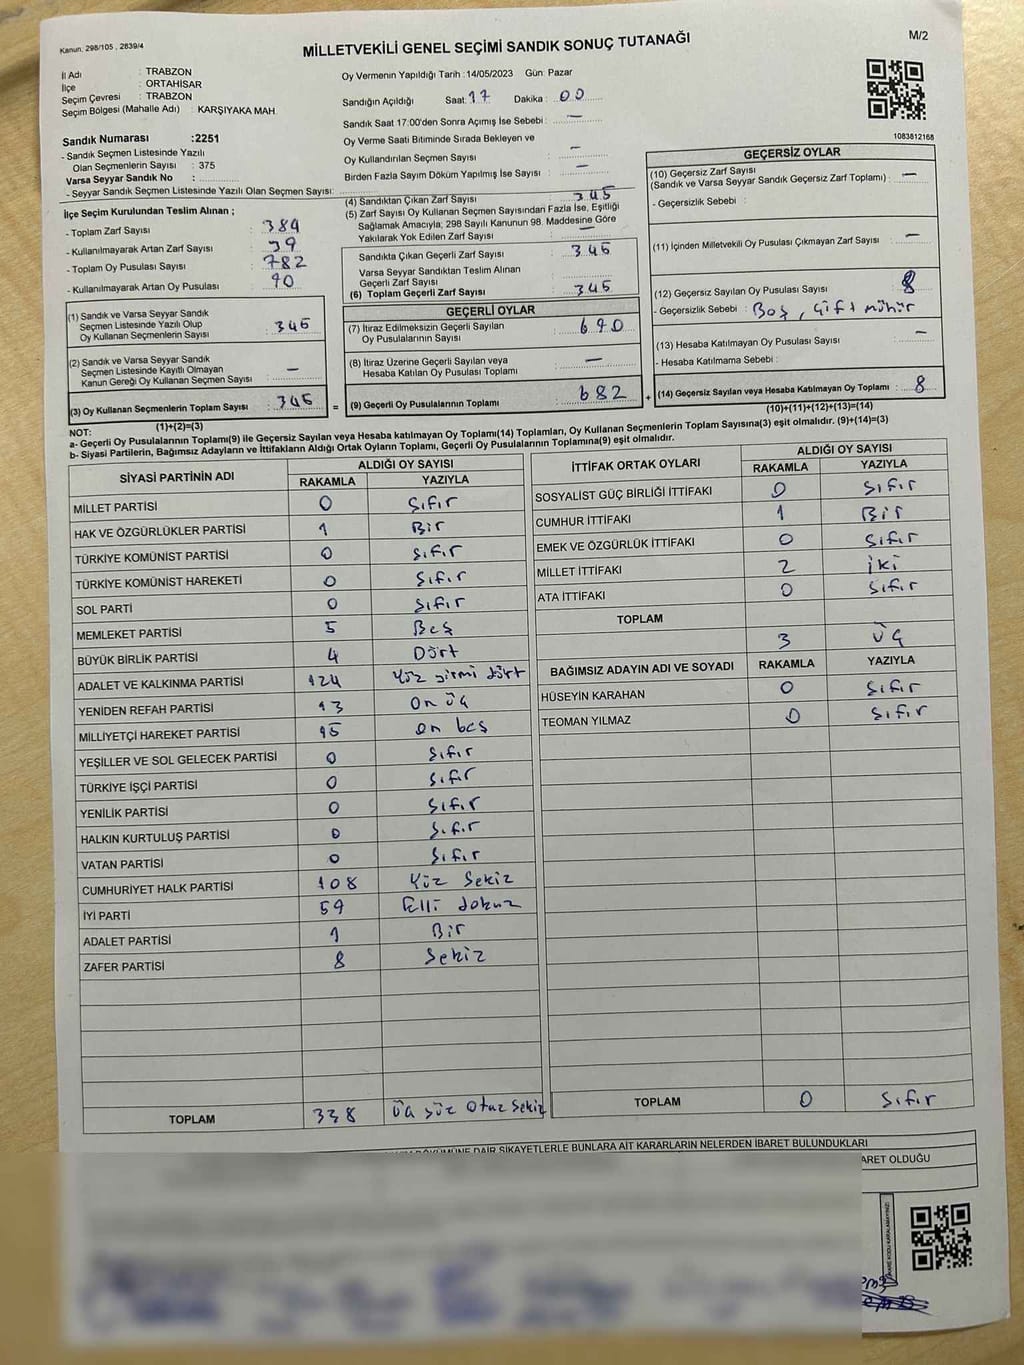 Kanun: 298/105 , 2839/4
MİLLETVEKİLİ GENEL SEÇİMİ SANDIK SONUÇ TUTANAĞI
M/2
İl Adı : TRABZON
İlçe : ORTAHİSAR
Seçim Çevresi : TRABZON
Seçim Bölgesi (Mahalle Adı) : KARŞIYAKA MAH.
Oy Vermenin Yapıldığı Tarih :14/05/2023 Gün: Pazar
Sandığın Açıldığı Saat: 17 Dakika : 00
Sandık Saat 17:00'den Sonra Açımış İse Sebebi : —
Oy Verme Saati Bitiminde Sırada Bekleyen ve
Oy Kullandırılan Seçmen Sayısı : —
Birden Fazla Sayım Döküm Yapılmış İse Sayısı : —
1083812168
Sandık Numarası :2251
- Sandık Seçmen Listesinde Yazılı
Olan Seçmenlerin Sayısı : 375
Varsa Seyyar Sandık No :
- Seyyar Sandık Seçmen Listesinde Yazılı Olan Seçmen Sayısı:
İlçe Seçim Kurulundan Teslim Alınan ;
- Toplam Zarf Sayısı : 384
- Kullanılmayarak Artan Zarf Sayısı : 39
- Toplam Oy Pusulası Sayısı : 782
- Kullanılmayarak Artan Oy Pusulası : 90
(1) Sandık ve Varsa Seyyar Sandık
Seçmen Listesinde Yazılı Olup
Oy Kullanan Seçmenlerin Sayısı : 345
(2) Sandık ve Varsa Seyyar Sandık
Seçmen Listesinde Kayıtlı Olmayan
Kanun Gereği Oy Kullanan Seçmen Sayısı : —
(3) Oy Kullanan Seçmenlerin Toplam Sayısı : 345
(1)+(2)=(3)
(4) Sandıktan Çıkan Zarf Sayısı : 345
(5) Zarf Sayısı Oy Kullanan Seçmen Sayısından Fazla İse, Eşitliği
Sağlamak Amacıyla; 298 Sayılı Kanunun 98. Maddesine Göre
Yakılarak Yok Edilen Zarf Sayısı : —
Sandıkta Çıkan Geçerli Zarf Sayısı : 345
Varsa Seyyar Sandıktan Teslim Alınan
Geçerli Zarf Sayısı :
(6) Toplam Geçerli Zarf Sayısı : 345
GEÇERLİ OYLAR
(7) İtiraz Edilmeksizin Geçerli Sayılan
Oy Pusulalarının Sayısı : 690
(8) İtiraz Üzerine Geçerli Sayılan veya
Hesaba Katılan Oy Pusulası Toplamı : —
= (9) Geçerli Oy Pusulalarının Toplamı : 682 +
GEÇERSİZ OYLAR
(10) Geçersiz Zarf Sayısı
(Sandık ve Varsa Seyyar Sandık Geçersiz Zarf Toplamı) : —
- Geçersizlik Sebebi :
(11) İçinden Milletvekili Oy Pusulası Çıkmayan Zarf Sayısı : —
(12) Geçersiz Sayılan Oy Pusulası Sayısı : 8
- Geçersizlik Sebebi : Boş, Çift mühür
(13) Hesaba Katılmayan Oy Pusulası Sayısı : —
- Hesaba Katılmama Sebebi :
(14) Geçersiz Sayılan veya Hesaba Katılmayan Oy Toplamı : 8
(10)+(11)+(12)+(13)=(14)
NOT:
a- Geçerli Oy Pusulalarının Toplamı(9) ile Geçersiz Sayılan veya Hesaba katılmayan Oy Toplamı(14) Toplamları, Oy Kullanan Seçmenlerin Toplam Sayısına(3) eşit olmalıdır. (9)+(14)=(3)
b- Siyasi Partilerin, Bağımsız Adayların ve İttifakların Aldığı Ortak Oyların Toplamı, Geçerli Oy Pusulalarının Toplamına(9) eşit olmalıdır.
SİYASİ PARTİNİN ADI ALDIĞI OY SAYISI
RAKAMLA YAZIYLA
MİLLET PARTİSİ 0 Sıfır
HAK VE ÖZGÜRLÜKLER PARTİSİ 1 Bir
TÜRKİYE KOMÜNİST PARTİSİ 0 Sıfır
TÜRKİYE KOMÜNİST HAREKETİ 0 Sıfır
SOL PARTİ 0 Sıfır
MEMLEKET PARTİSİ 5 Beş
BÜYÜK BİRLİK PARTİSİ 4 Dört
ADALET VE KALKINMA PARTİSİ 124 Yüz yirmi dört
YENİDEN REFAH PARTİSİ 13 On üç
MİLLİYETÇİ HAREKET PARTİSİ 15 On beş
YEŞİLLER VE SOL GELECEK PARTİSİ 0 Sıfır
TÜRKİYE İŞÇİ PARTİSİ 0 Sıfır
YENİLİK PARTİSİ 0 Sıfır
HALKIN KURTULUŞ PARTİSİ 0 Sıfır
VATAN PARTİSİ 0 Sıfır
CUMHURİYET HALK PARTİSİ 108 Yüz Sekiz
İYİ PARTİ 59 Elli dokuz
ADALET PARTİSİ 1 Bir
ZAFER PARTİSİ 8 Sekiz
TOPLAM 338 Üç yüz Otuz Sekiz
İTTİFAK ORTAK OYLARI ALDIĞI OY SAYISI
RAKAMLA YAZIYLA
SOSYALİST GÜÇ BİRLİĞİ İTTİFAKI 0 Sıfır
CUMHUR İTTİFAKI 1 Bir
EMEK VE ÖZGÜRLÜK İTTİFAKI 0 Sıfır
MİLLET İTTİFAKI 2 İki
ATA İTTİFAKI 0 Sıfır
TOPLAM 3 Üç
BAĞIMSIZ ADAYIN ADI VE SOYADI RAKAMLA YAZIYLA
HÜSEYİN KARAHAN 0 Sıfır
TEOMAN YILMAZ 0 Sıfır
TOPLAM 0 Sıfır
DAİR ŞİKAYETLERLE BUNLARA AİT KARARLARIN NELERDEN İBARET BULUNDUKLARI
ARET OLDUĞU